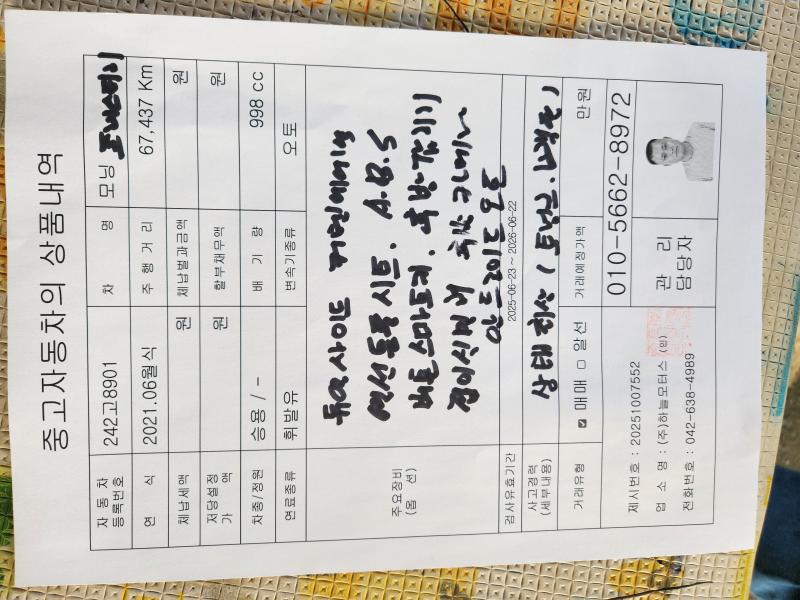 중고자동차의 상품내역
자동차 등록번호 242고8901 차 명 모닝
연 식 2021.06월식 주 행 거 리 67,437 Km
체납세액 원 체납벌과금액 원
저당설정 가 액 원 할부채무액 원
차종/정원 승용 / - 배 기 량 998 cc
연료종류 휘발유 변속기종류 오토
주요장비
(옵 션)
듀얼사이드
열선 시트. A.B.S
버튼스마트키.
접이식밀러
안드로이드 오토
검사유효기간 2025-06-23 ~ 2026-06-22
사고경력
(세부내용)
상태 최상
거래유형 ☑ 매매 □ 알선 거래예정가액 만원
제시번호 : 20251007552
업 소 명 : (주)하늘모터스 (인)
전화번호 : 042-638-4989
관 리
담당자
010-5662-8972